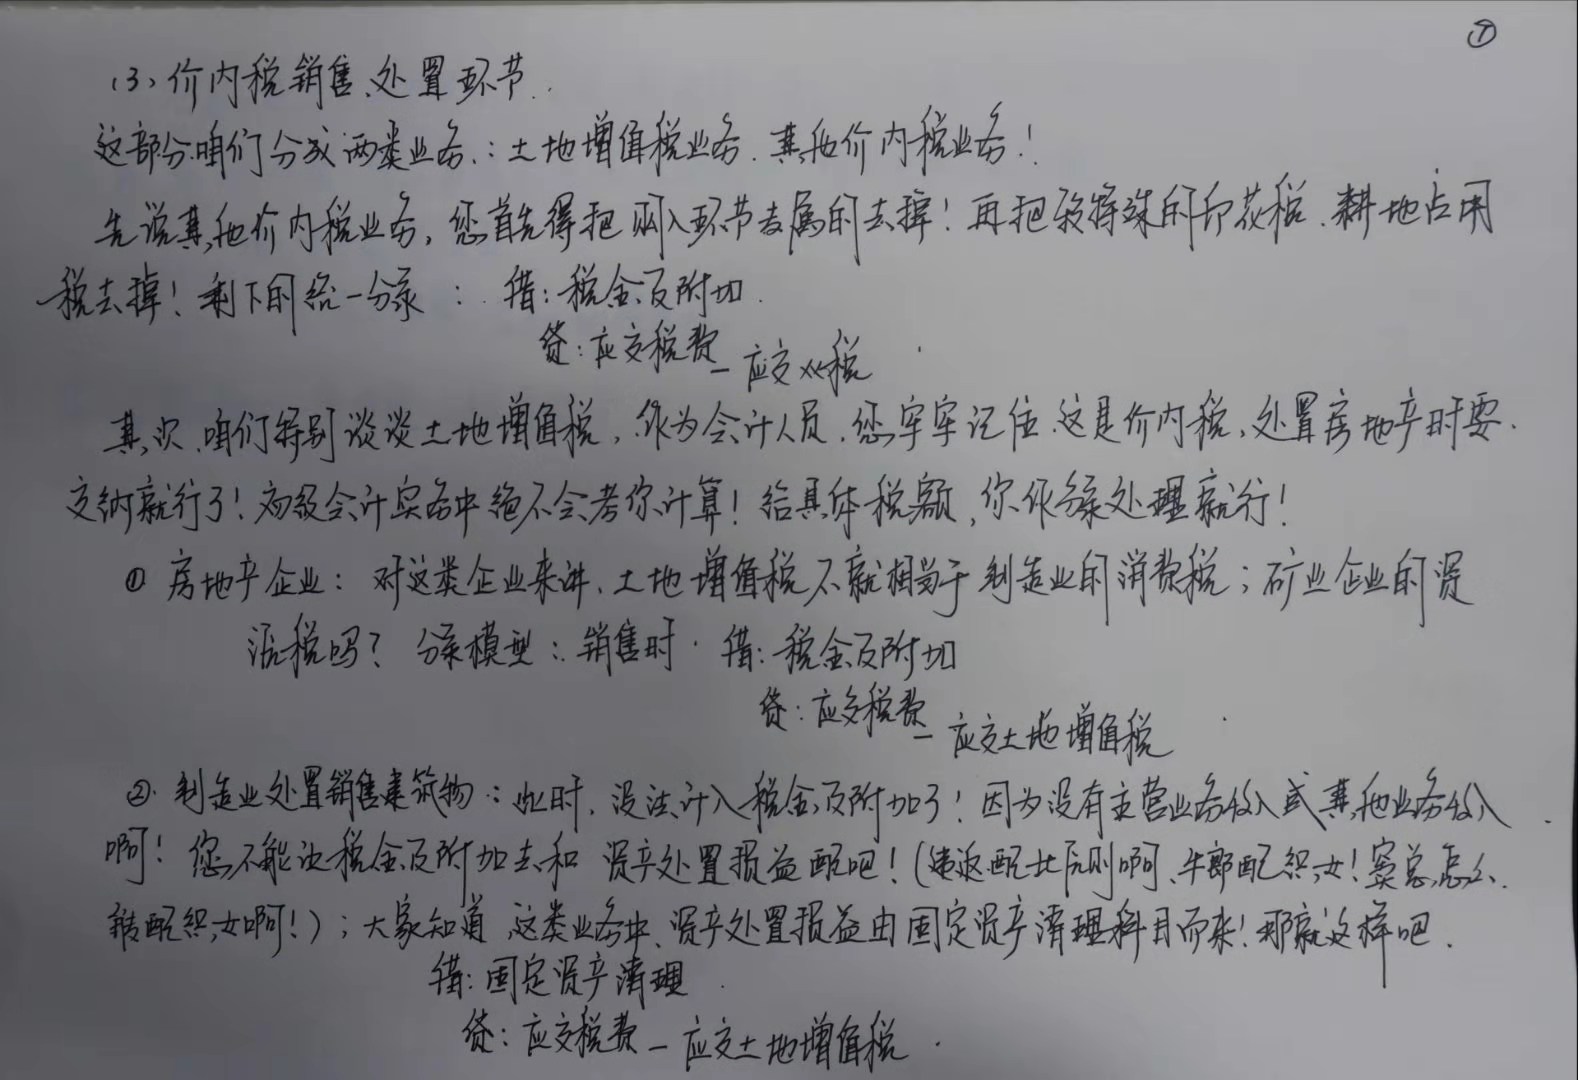 ⑦
(3)、价内税销售、处置环节.
这部分咱们分成两类业务：土地增值税业务、其他价内税业务！
先说其他价内税业务，您首先得把购入环节专属的去掉！再把较特殊的印花税、耕地占用
税去掉！剩下的统一分录：借：税金及附加.
贷：应交税费—应交××税
其次，咱们特别谈谈土地增值税，作为会计人员，您牢牢记住，这是价内税，处置房地产时要
交纳就行了！初级会计实务中绝不会考你计算！给具体税额，你作分录处理就行！
① 房地产企业：对这类企业来讲，土地增值税不就相当于制造业的消费税；矿业企业的资
源税吗？分录模型：销售时. 借：税金及附加
贷：应交税费—应交土地增值税
②. 制造业处置销售建筑物：此时，没法计入税金及附加了！因为没有主营业务收入或其他业务收入
啊！您不能让税金及附加去和资产处置损益配吧！(违反配比原则啊、牛郎配织女！窦总怎么
能配织女啊！)；大家知道，这类业务中，资产处置损益由固定资产清理科目而来！那就这样吧.
借：固定资产清理
贷：应交税费—应交土地增值税.